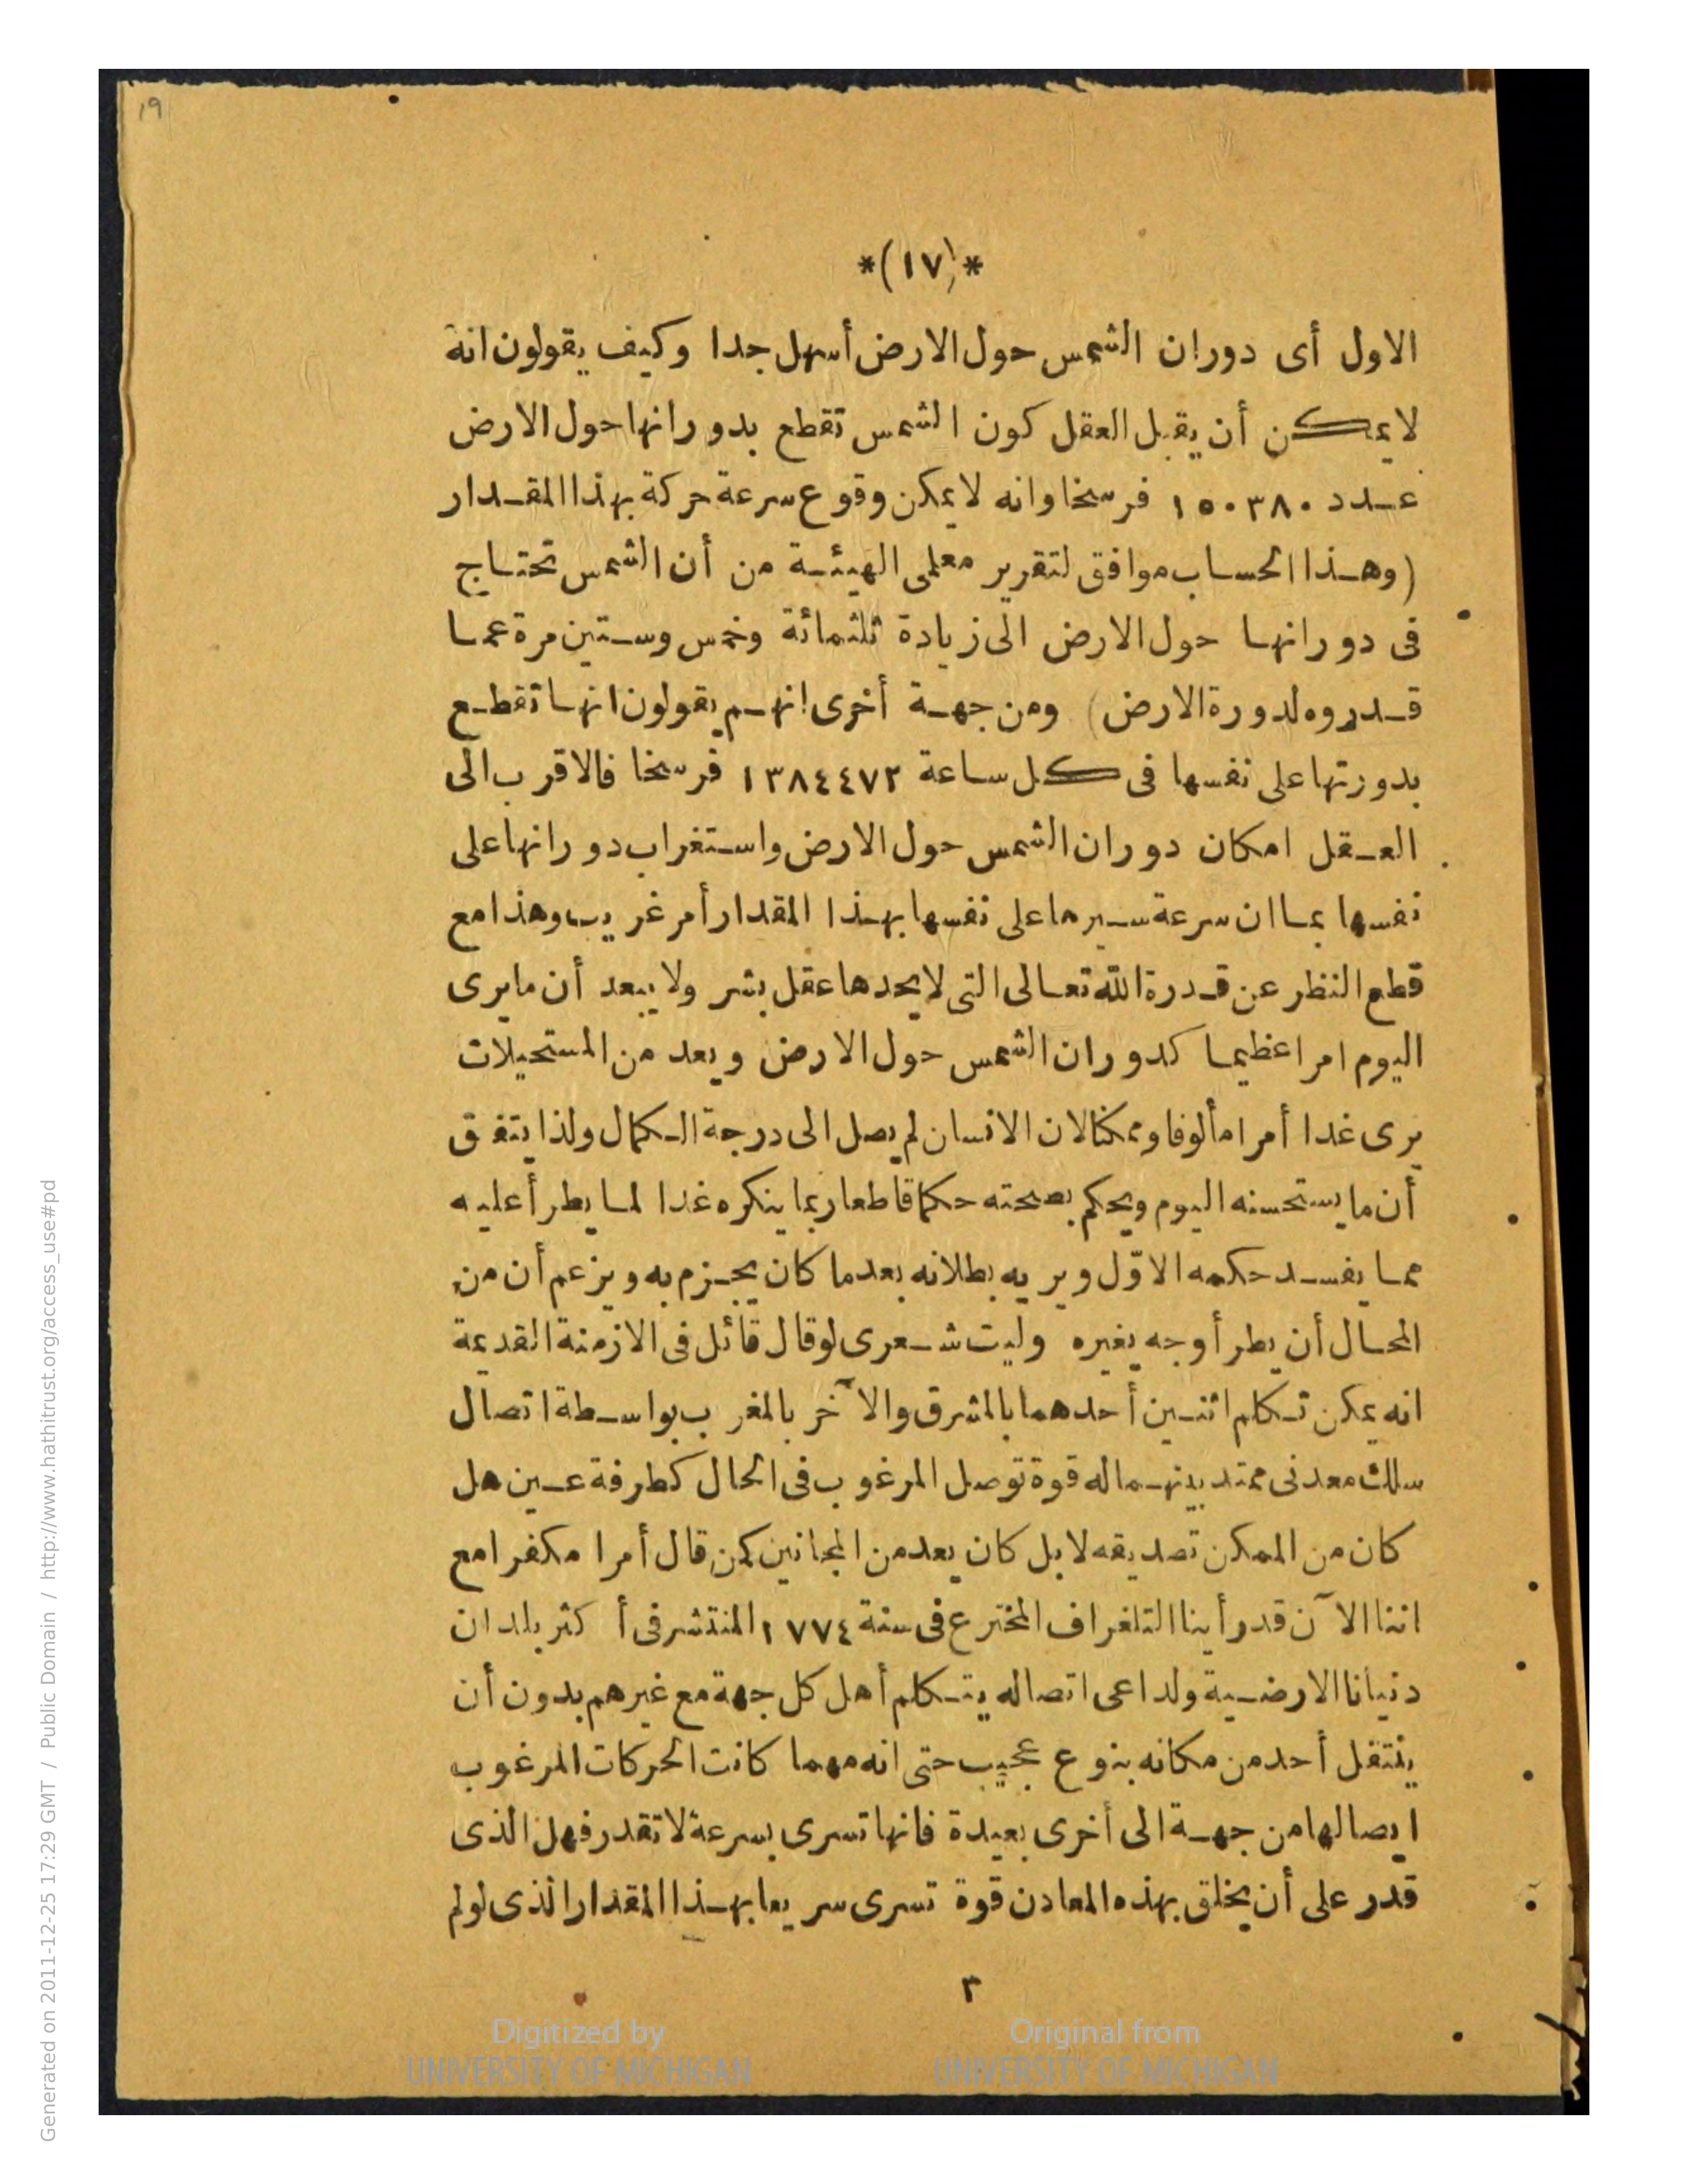 ١٩
*(١٧)*
الاول أى دوران الشمس حول الارض أسهل جدا وكيف يقولون انه
لا يمكن أن يقبل العقل كون الشمس تقطع بدورانها حول الارض
عدد ١٥٠٣٨٠ فرسخا وانه لا يمكن وقوع سرعة حركة بهذا المقدار
(وهذا الحساب موافق لتقرير معلمى الهيئة من أن الشمس تحتاج
فى دورانها حول الارض الى زيادة ثلثمائة وخمس وستين مرة عما
قدروه لدورة الارض) ومن جهة أخرى انهم يقولون انها تقطع
بدورتها على نفسها فى كل ساعة ١٣٨٤٤٧٢ فرسخا فالاقرب الى
العقل امكان دوران الشمس حول الارض واستغراب دورانها على
نفسها بما ان سرعة سيرها على نفسها بهذا المقدار أمر غريب وهذا مع
قطع النظر عن قدرة الله تعالى التى لا يحدها عقل بشر ولا يبعد أن ما يرى
اليوم امرا عظيما كدوران الشمس حول الارض ويعد من المستحيلات
يرى غدا أمرا مألوفا وممكنا لان الانسان لم يصل الى درجة الكمال ولذا يتفق
أن ما يستحسنه اليوم ويحكم بصحته حكما قاطعا ربما ينكره غدا لما يطرأ عليه
مما يفسد حكمه الاوّل ويريه بطلانه بعدما كان يجزم به ويزعم أن من
المحال أن يطرأ وجه يغيره وليت شعرى لو قال قائل فى الازمنة القديمة
انه يمكن تكلم اثنين أحدهما بالمشرق والآخر بالمغرب بواسطة اتصال
سلك معدنى ممتد بينهما له قوة توصل المرغوب فى الحال كطرفة عين هل
كان من الممكن تصديقه لا بل كان يعد من المجانين كمن قال أمرا مكفرا مع
اننا الآن قد رأينا التلغراف المخترع فى سنة ١٧٧٤ المنتشر فى أكثر بلدان
دنيانا الارضية ولداعى اتصاله يتكلم أهل كل جهة مع غيرهم بدون أن
ينتقل أحد من مكانه بنوع عجيب حتى انه مهما كانت الحركات المرغوب
ايصالها من جهة الى أخرى بعيدة فانها تسرى بسرعة لا تقدر فهل الذى
قدر على أن يخلق بهذه المعادن قوة تسرى سريعا بهذا المقدار الذى لو لم
٣
Digitized by
UNIVERSITY OF MICHIGAN
Original from
UNIVERSITY OF MICHIGAN
Generated on 2011-12-25 17:29 GMT / http://www.hathitrust.org/access_use#pd
Public Domain